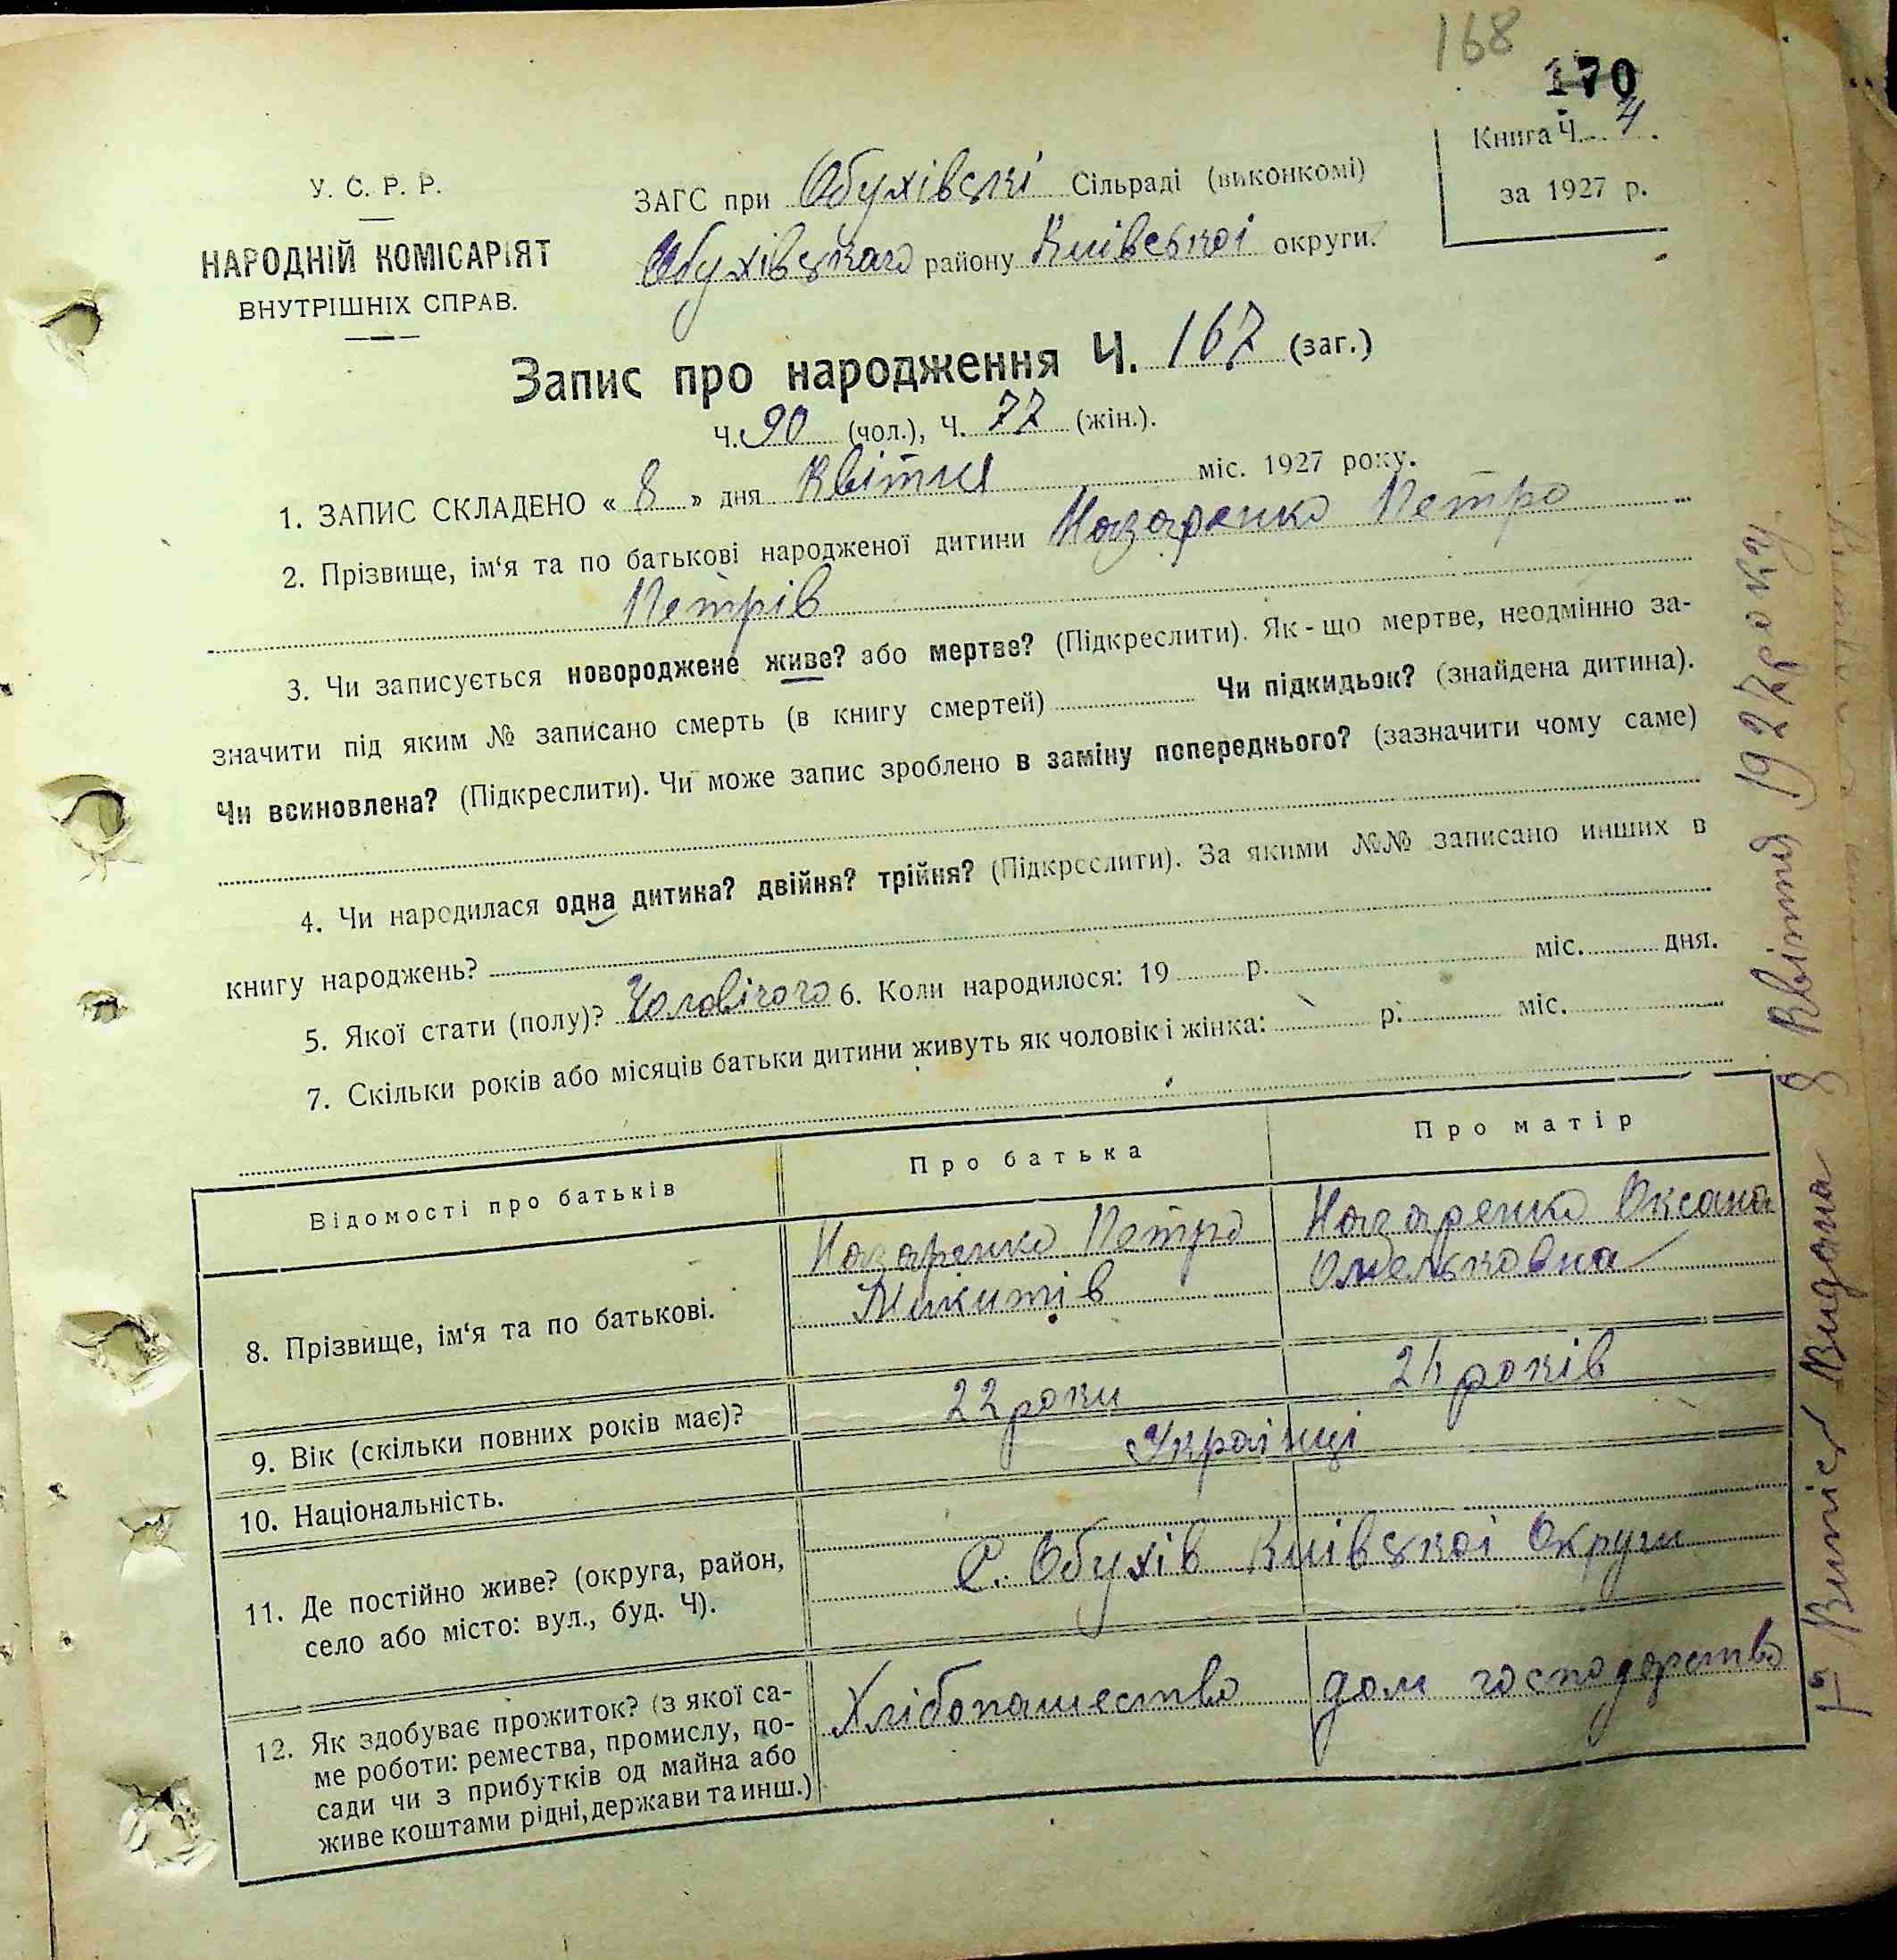 168
170
Книга Ч. 4.
за 1927 р.
У. С. Р. Р.
НАРОДНІЙ КОМІСАРІЯТ
ВНУТРІШНІХ СПРАВ.
ЗАГС при Обухівські Сільраді (виконкомі)
Обухівського району Київської округи.
Запис про народження Ч. 167 (заг.)
Ч. 90 (чол.), Ч. 77 (жін.).
1. ЗАПИС СКЛАДЕНО « 8 » дня Квітня міс. 1927 року.
2. Прізвище, ім‘я та по батькові народженої дитини Назаренко Петро
Петрів
3. Чи записується новороджене живе? або мертве? (Підкреслити). Як-що мертве, неодмінно за-
значити під яким № записано смерть (в книгу смертей) Чи підкидьок? (знайдена дитина).
Чи всиновлена? (Підкреслити). Чи може запис зроблено в заміну попереднього? (зазначити чому саме)
4. Чи народилася одна дитина? двійня? трійня? (Підкреслити). За якими №№ записано инших в
книгу народжень?
5. Якої стати (полу)? Чоловічого 6. Коли народилося: 19 р. міс. дня.
7. Скільки років або місяців батьки дитини живуть як чоловік і жінка: р. міс.
Відомості про батьків Про батька Про матір
8. Прізвище, ім‘я та по батькові.
Назаренко Петро
Микитів
Назаренко Оксана
Омельковна
9. Вік (скільки повних років має)? 22 роки 24 років
10. Національність. Українці
11. Де постійно живе? (округа, район,
село або місто: вул., буд. Ч).
С. Обухів Київської Округи
12. Як здобуває прожиток? (з якої са-
ме роботи: ремества, промислу, по-
сади чи з прибутків од майна або
живе коштами рідні, держави та инш.)
Хлібопашество дом господарство
Витяг Видана 8 Квітня 1927 року